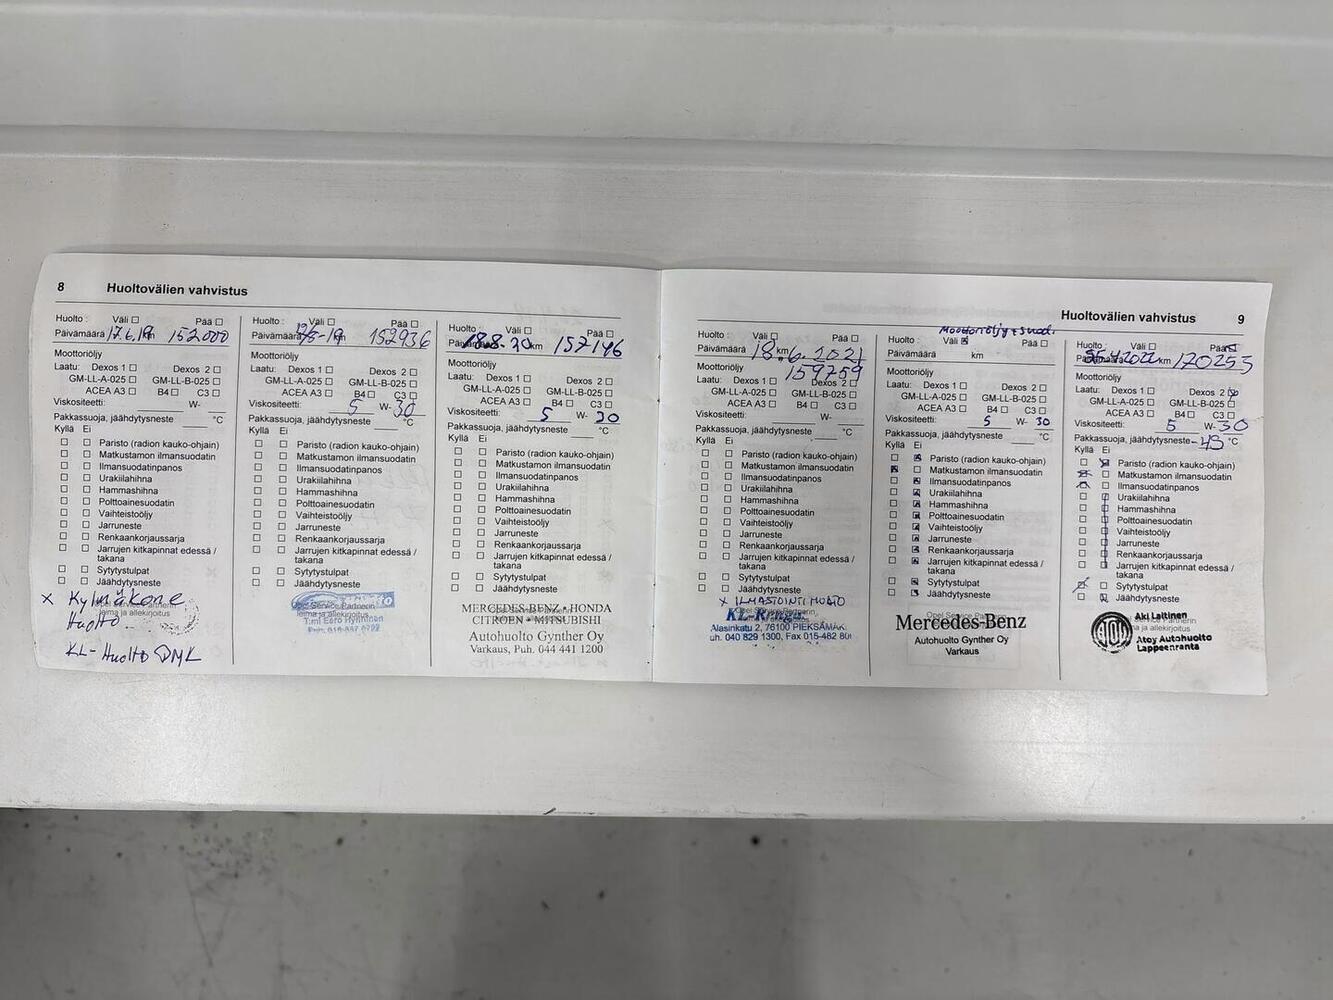 8 Huoltovälien vahvistus
Huolto : Väli ☐ Pää ☐
Päivämäärä 17.6.19 km 152000
Moottoriöljy
Laatu: Dexos 1 ☐ Dexos 2 ☐
GM-LL-A-025 ☐ GM-LL-B-025 ☐
ACEA A3 ☐ B4 ☐ C3 ☐
Viskositeetti: W-
Pakkassuoja, jäähdytysneste °C
Kyllä Ei
☐ ☐ Paristo (radion kauko-ohjain)
☐ ☐ Matkustamon ilmansuodatin
☐ ☐ Ilmansuodatinpanos
☐ ☐ Urakiilahihna
☐ ☐ Hammashihna
☐ ☐ Polttoainesuodatin
☐ ☐ Vaihteistoöljy
☐ ☐ Jarruneste
☐ ☐ Renkaankorjaussarja
☐ ☐ Jarrujen kitkapinnat edessä /
takana
☐ ☐ Sytytystulpat
☐ ☐ Jäähdytysneste
x Kylmäkone
Huolto
KL-Huolto DMK
Huolto : Väli ☐ Pää ☐
Päivämäärä km 152936
Moottoriöljy
Laatu: Dexos 1 ☐ Dexos 2 ☐
GM-LL-A-025 ☐ GM-LL-B-025 ☐
ACEA A3 ☐ B4 ☐ C3 ☐
Viskositeetti: 5 W- 30
Pakkassuoja, jäähdytysneste °C
Kyllä Ei
☐ ☐ Paristo (radion kauko-ohjain)
☐ ☐ Matkustamon ilmansuodatin
☐ ☐ Ilmansuodatinpanos
☐ ☐ Urakiilahihna
☐ ☐ Hammashihna
☐ ☐ Polttoainesuodatin
☐ ☐ Vaihteistoöljy
☐ ☐ Jarruneste
☐ ☐ Renkaankorjaussarja
☐ ☐ Jarrujen kitkapinnat edessä /
takana
☐ ☐ Sytytystulpat
☐ ☐ Jäähdytysneste
Opel Service Partnerin
leima ja allekirjoitus
Huolto : Väli ☐ Pää ☐
Päivämäärä 18.8.20 km 157146
Moottoriöljy
Laatu: Dexos 1 ☐ Dexos 2 ☐
GM-LL-A-025 ☐ GM-LL-B-025 ☐
ACEA A3 ☐ B4 ☐ C3 ☐
Viskositeetti: 5 W- 30
Pakkassuoja, jäähdytysneste °C
Kyllä Ei
☐ ☐ Paristo (radion kauko-ohjain)
☐ ☐ Matkustamon ilmansuodatin
☐ ☐ Ilmansuodatinpanos
☐ ☐ Urakiilahihna
☐ ☐ Hammashihna
☐ ☐ Polttoainesuodatin
☐ ☐ Vaihteistoöljy
☐ ☐ Jarruneste
☐ ☐ Renkaankorjaussarja
☐ ☐ Jarrujen kitkapinnat edessä /
takana
☐ ☐ Sytytystulpat
☐ ☐ Jäähdytysneste
MERCEDES-BENZ • HONDA
CITROEN • MITSUBISHI
Autohuolto Gynther Oy
Varkaus, Puh. 044 441 1200
Huoltovälien vahvistus 9
Huolto : Väli ☐ Pää ☐
Päivämäärä 18.6.2021 km
159759
Moottoriöljy
Laatu: Dexos 1 ☐ Dexos 2 ☐
GM-LL-A-025 ☐ GM-LL-B-025 ☐
ACEA A3 ☐ B4 ☐ C3 ☐
Viskositeetti: W-
Pakkassuoja, jäähdytysneste °C
Kyllä Ei
☐ ☐ Paristo (radion kauko-ohjain)
☐ ☐ Matkustamon ilmansuodatin
☐ ☐ Ilmansuodatinpanos
☐ ☐ Urakiilahihna
☐ ☐ Hammashihna
☐ ☐ Polttoainesuodatin
☐ ☐ Vaihteistoöljy
☐ ☐ Jarruneste
☐ ☐ Renkaankorjaussarja
☐ ☐ Jarrujen kitkapinnat edessä /
takana
☐ ☐ Sytytystulpat
☐ ☐ Jäähdytysneste
x ILMASTOINTIHUOLTO
Alasinkatu 2, 76100 PIEKSÄMÄKI
uh. 040 829 1300, Fax 015-482
Moottoriöljy + suod.
Huolto : Väli ☒ Pää ☐
Päivämäärä km
Moottoriöljy
Laatu: Dexos 1 ☐ Dexos 2 ☐
GM-LL-A-025 ☐ GM-LL-B-025 ☐
ACEA A3 ☐ B4 ☐ C3 ☐
Viskositeetti: 5 W- 30
Pakkassuoja, jäähdytysneste °C
Kyllä Ei
☐ ☒ Paristo (radion kauko-ohjain)
☒ ☐ Matkustamon ilmansuodatin
☐ ☒ Ilmansuodatinpanos
☐ ☒ Urakiilahihna
☐ ☒ Hammashihna
☐ ☒ Polttoainesuodatin
☐ ☒ Vaihteistoöljy
☐ ☒ Jarruneste
☐ ☒ Renkaankorjaussarja
☐ ☒ Jarrujen kitkapinnat edessä /
takana
☐ ☒ Sytytystulpat
☐ ☒ Jäähdytysneste
Mercedes-Benz
Autohuolto Gynther Oy
Varkaus
Huolto : Väli ☐ Pää ☒
Päivämäärä km 170253
Moottoriöljy
Laatu: Dexos 1 ☐ Dexos 2 ☒
GM-LL-A-025 ☐ GM-LL-B-025 ☐
ACEA A3 ☐ B4 ☐ C3 ☐
Viskositeetti: 5 W- 30
Pakkassuoja, jäähdytysneste °C
Kyllä Ei
☐ ☒ Paristo (radion kauko-ohjain)
☒ ☐ Matkustamon ilmansuodatin
☒ ☐ Ilmansuodatinpanos
☐ ☐ Urakiilahihna
☐ ☐ Hammashihna
☐ ☐ Polttoainesuodatin
☐ ☐ Vaihteistoöljy
☐ ☐ Jarruneste
☐ ☐ Renkaankorjaussarja
☐ ☐ Jarrujen kitkapinnat edessä /
takana
☒ ☐ Sytytystulpat
☐ ☒ Jäähdytysneste
Aki Laitinen
Atoy Autohuolto
Lappeenranta